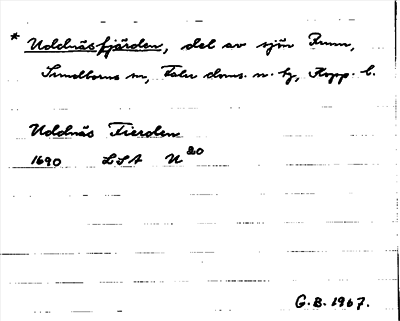 * Uddnäsfjärden, del av sjön Runn,
Sundborns sn, Falu doms. n. tg, Kopp. l.
Uddnäs Fierden
1690 LSA U 20
G.B. 1967.